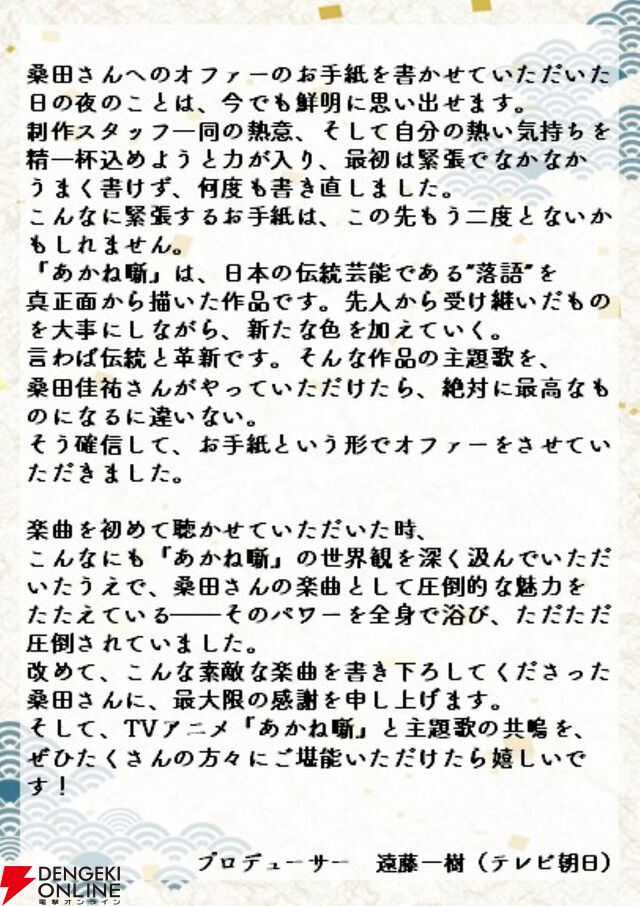 桑田さんへのオファーのお手紙を書かせていただいた
日の夜のことは、今でも鮮明に思い出せます。
制作スタッフ一同の熱意、そして自分の熱い気持ちを
精一杯込めようと力が入り、最初は緊張でなかなか
うまく書けず、何度も書き直しました。
こんなに緊張するお手紙は、この先もう二度とないか
もしれません。
『あかね噺』は、日本の伝統芸能である"落語"を
真正面から描いた作品です。先人から受け継いだもの
を大事にしながら、新たな色を加えていく。
言わば伝統と革新です。そんな作品の主題歌を、
桑田佳祐さんがやっていただけたら、絶対に最高なも
のになるに違いない。
そう確信して、お手紙という形でオファーをさせてい
ただきました。
楽曲を初めて聴かせていただいた時、
こんなにも『あかね噺』の世界観を深く汲んでいただ
いたうえで、桑田さんの楽曲として圧倒的な魅力を
たたえている――そのパワーを全身で浴び、ただただ
圧倒されていました。
改めて、こんな素敵な楽曲を書き下ろしてくださった
桑田さんに、最大限の感謝を申し上げます。
そして、TVアニメ『あかね噺』と主題歌の共鳴を、
ぜひたくさんの方々にご堪能いただけたら嬉しいで
す！
プロデューサー　遠藤一樹（テレビ朝日）
DENGEKI
ONLINE
電撃オンライン